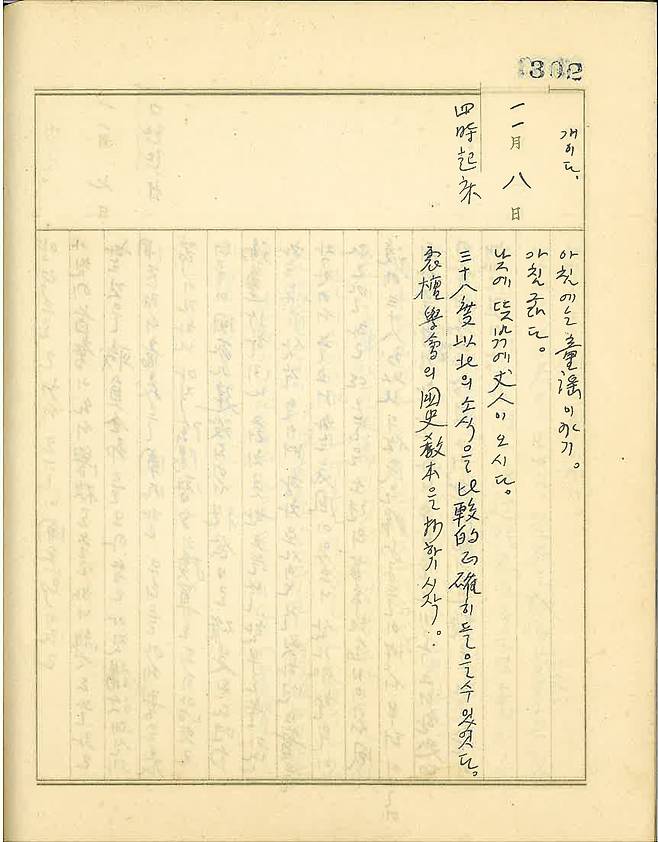 302
개이다.
一一月 八日
四時起床
아침에는 童謠이야기.
아침 굶다.
낮에 뜻밖에 丈人이 오시다.
三十八度以北의 소식을 比較的 正確히 들을수있엇다.
震檀學會의 國史敎本을 抄하기 시작.